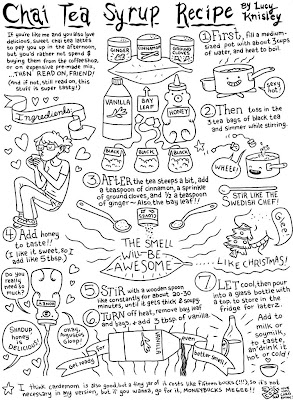 Chai Tea Syrup Recipe
By Lucy
Knisley
If you're like me and you also love
delicious, sweet chai lattes
to pep you up in the afternoon,
but you'd rather not spend $
buying them from the coffeeshop,
or an expensive pre-made mix,
...THEN READ ON, FRIEND!
(And if not, still read on, this
stuff is super tasty!)
Ingredients:
GINGER
CINNAMON
GROUND
CLOVES
VANILLA
BAY
LEAF
HONEY
BLACK
BLACK
BLACK
① First, fill a medium-
sized pot with about 3 cups
of water, and heat to boil.
very
hot!
② Then toss in the
3 tea bags of black tea
and simmer while stirring.
WHEEE!
STIR LIKE THE
SWEDISH CHEF!
③ AFTER the tea steeps a bit, add
a teaspoon of cinnamon, a sprinkle
of ground cloves, and ½ a teaspoon
of ginger — Also, the bay leaf!
THE SMELL
WILL BE
AWESOME
...LIKE CHRISTMAS!
④ Add honey
to taste!!
(I like it sweet, so I
add like 5 tbsp.)
Do you
really
need so
much?
SHADUP
honey
is
DELICIOUS!
Okay,
Augustus
Gloop!
⑤ STIR with a wooden spoon
like constantly for about 20-30
minutes, until it gets thick & soupy.
⑥ TURN off heat, remove bay leaf
and bags, & add 3 tbsp of vanilla.
Get ready for
even
better smell!
⑦ LET cool, then pour
into a glass bottle with
a top, to store in the
fridge for later.
Add to
milk or
soymilk,
to taste,
an' drink it
hot or cold!
I think cardamom is also good, but a tiny jar of it costs like fifteen bucks (!!!), so it's not
necessary in my version, but if you wanna, go for it, MONEYBUCKS MCGEE!!